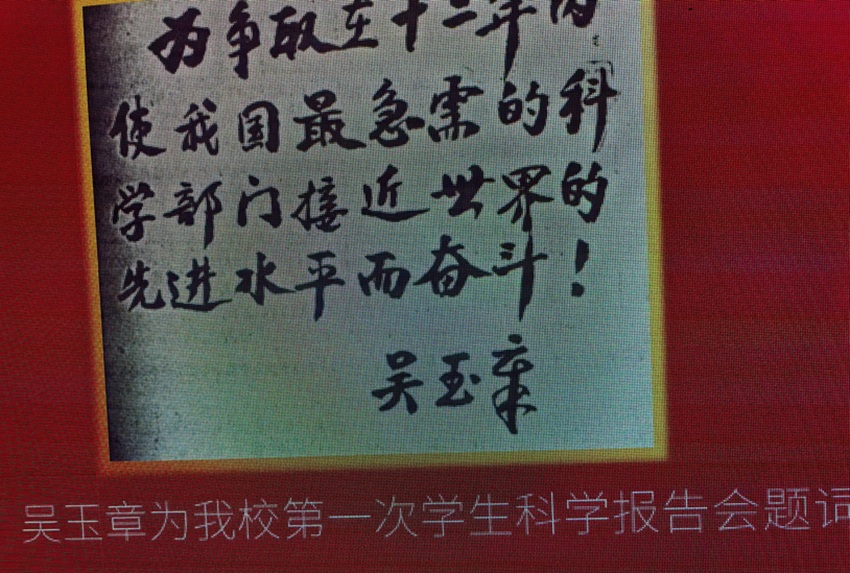 为争取在十二年内
使我国最急需的科
学部门接近世界的
先进水平而奋斗！
吴玉章
吴玉章为我校第一次学生科学报告会题词